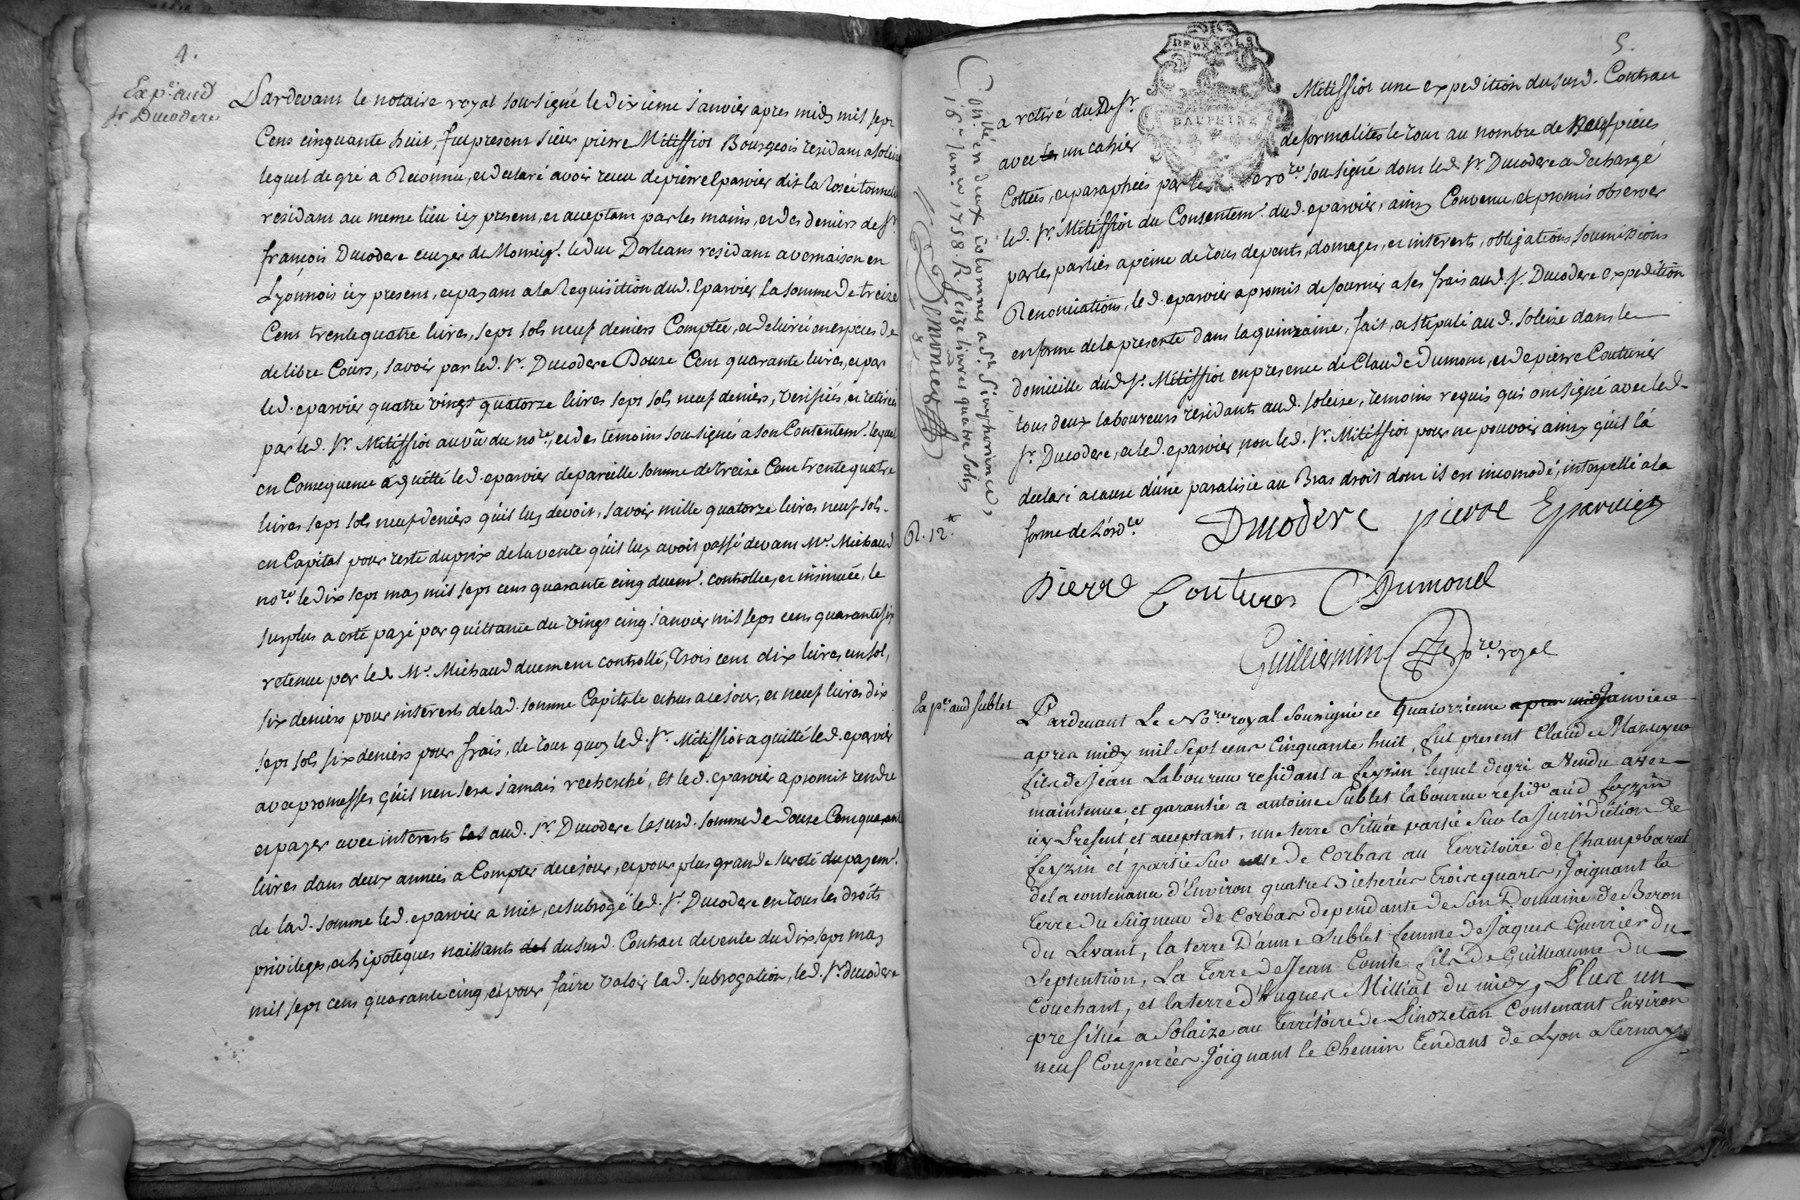 4.
Exp.e aud
Sr Ducodere
Pardevant le notaire royal sousigné le dixieme Janvier apres midy mil sept
Cens cinquante huit, fut present sieur pierre Mitiffiot Bourgeois residant a soleize
lequel de gré a Reconnu, et declaré avoir receu de pierre Eparvier dit la rosée tonnelier
residant au meme lieu icy present, et aceptant par les mains, et des deniers de Sr.
françois Ducodere ecuyer de Monseigr. le duc Dorleans residant a vernaison en
Lyonnois icy present, et payant a la Requisition dud. Eparvier la somme de treize
Cent trente quatre livres, sept sols neuf deniers Comptée, et delivrée en especes de
de libre Cours, savoir par led. Sr. Ducodere Douze Cent quarante livres, et par
led. eparvier quatre vingt quatorze livres sept sols neuf deniers, verifiés, et retirés
par led. Sr. Mitiffiot au vû du nore, et des temoins sousignés a son Contentem.t lequel
en Consequence a quitté led. eparvier de pareille somme de treize Cent trente quatre
livres sept sols neuf deniers qu'il luy devoit, savoir mille quatorze livres neuf sols
en Capital pour reste du prix de la vente qu'il luy avoit passé devant Me. Michaud
nore. le dix sept may mil sept cens quarante cinq duem.t controllée, et insinuée, le
surplus a eté payé par quittance du vingt cinq Janvier mil sept cens quarante six
retenue par led. Me. Michaud duement controllé, trois cent dix livres, un sol,
six deniers pour interets de lad. somme Capitale echus a ce jour, et neuf livres dix
sept sols six deniers pour frais, de tout quoy led. Sr. Mitiffiot a quitté led. eparvier
avec promesses qu'il n'en sera jamais recherché, Et led. eparvier a promit rendre
et payer avec interets aud. Sr. Ducodere la susd. somme de Douze Cent quarante
livres dans deux années a Compter de ce jour, et pour plus grande sureté du payem.t
de lad. somme led. eparvier a mit, et subrogé led. Sr. Ducodere en tous les droits
privileges, et hipoteques naissants du susd. Contract de vente du dix sept may
mil sept cens quarante cinq, et pour faire valoir lad. subrogation, led. Sr. ducodere
Conllé en deux colonnes a St. Simphorien ce
16e. Janer. 1758. R. seize livres quatre sols
Dumonet
R. 12.
5.
DEUX SOLS
DAUPHINE
a retiré dud. Sr. Mitiffiot une expedition du susd. Contract
avec un cahier de formalités le tout au nombre de Neuf pieces
Cottées, et paraphées par le nore. sousigné dont led. Sr. Ducodere a dechargé
led. Sr. Mitiffiot du Consentem.t dud. eparvier, ainsy Convenu, et promis observer
par les parties a peine de tous depents, domages, et interets, obligations, soumissions
Renonciations, led. eparvier a promis de fournir a ses frais aud. Sr. Ducodere expedition
en forme de la presente dans la quinzaine, fait, et stipulé aud. soleize dans le
domicille dud. Sr. Mitiffiot en presence de Claude Dumont, et de pierre Couturier
tous deux laboureurs residants aud. soleize, temoins requis qui ont signé avec led.
Sr. Ducodere, et led. eparvier, non led. Sr. Mitiffiot pour ne pouvoir ainsy qu'il l'a
declaré a cause d'une paralisie au Bras droit dont il est incomodé, interpellé a la
forme de L'ordce
Ducodere pierre Eparvier
Pierre Couturer C Dumond
Guilliermin nore. royal
Exp.e aud sublet
Pardevant Le Nore. royal sousigné ce quatorzieme apres midy Janvier
apres midy mil sept cens Cinquante huit, fut present Claude Mazuyer
fils de Jean Laboureur residant a feyzin lequel de gré a Vendu avec
maintenue et garantie a antoine Sublet laboureur reside. aud feyzin
icy Present et acceptant, une terre Située partie Sur la Jurisdiction de
feyzin et partie sur de Corbas au Territoire de Champbarat
de la contenance d'Environ quatre Bicherées trois quarts, Joignant la
terre du Seigneur de Corbas dependante de Son Domaine de Beron
du Levant, la terre D'anne Sublet femme de Jaques Guerrier du
Septention, La Terre de Jean Comte fils de Guilleaume du
Couchant, et la terre d'Hugues Milliat du midy, Plus un
pre Situé a Solaize au Territoire de Sinozetan Contenant Environ
neuf Couperées Joignant le Chemin Tendant de Lyon a Ternay